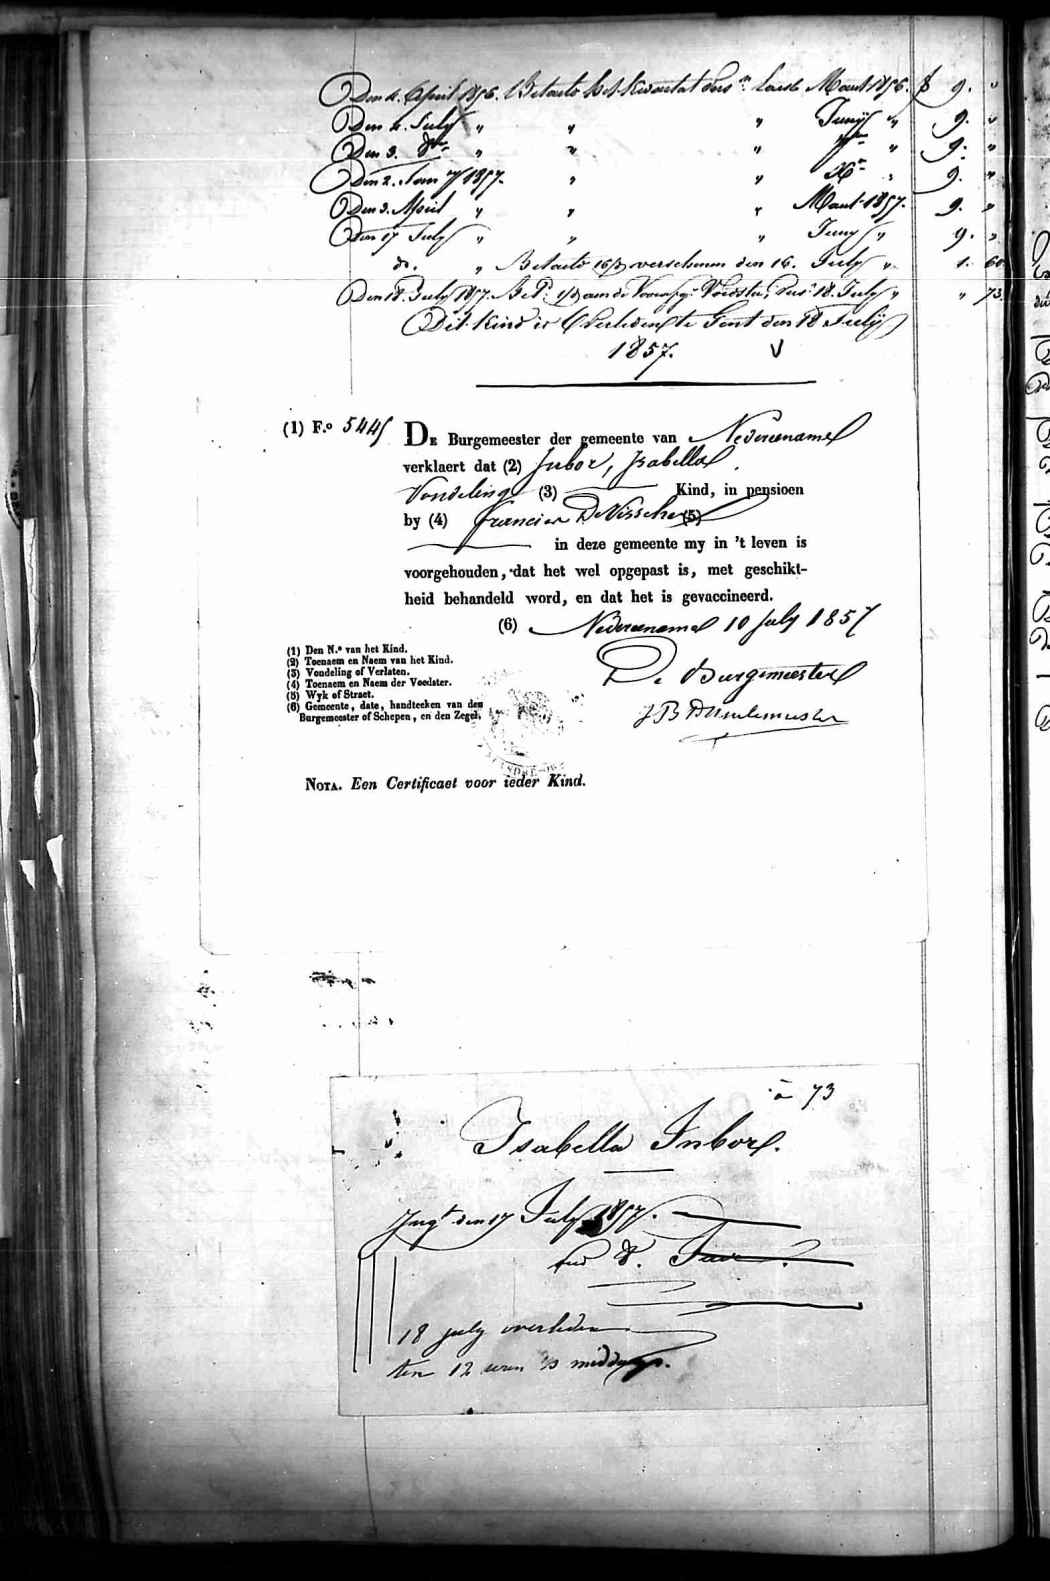 Den 4. April 1856. Betaelt het Kwartal vers.n laest Maert 1856. f 9. "
Den 4. July " " " Junij " 9. "
Den 3. 8re " " " 7bre " 9. "
Den 2. Janry 1857. " " Xre " 9. "
Den 3. April " " " Maert 1857. 9. "
Den 17 July " " " Juny " 9. "
do. " Betaelt 16/d verschenen den 16. July " 1. 60
Den 18. July 1857. Bet. aen de Voedster, 18. July " " 73
Dit Kind is Overleden te Gent den 18 Julij
1857. V
(1) F.o 5445 DE Burgemeester der gemeente van Nederename
verklaert dat (2) Inbor, Isabella
Vondeling (3) Kind, in pensioen
by (4) Francies DeVisscher (5)
in deze gemeente my in 't leven is
voorgehouden, dat het wel opgepast is, met geschikt-
heid behandeld word, en dat het is gevaccineerd.
(6) Nederename 10 July 1857
(1) Den N.o van het Kind.
(2) Toenaem en Naem van het Kind.
(3) Vondeling of Verlaten.
(4) Toenaem en Naem der Voedster.
(5) Wyk of Straet.
(6) Gemeente, date, handteeken van den
Burgemeester of Schepen, en den Zegel.
De Burgemeester
NOTA. Een Certificaet voor ieder Kind.
à 73
Isabella Inbor.
Ingt. den 17 July 1857.
18 july overleden
ten 12 uren 's middags.